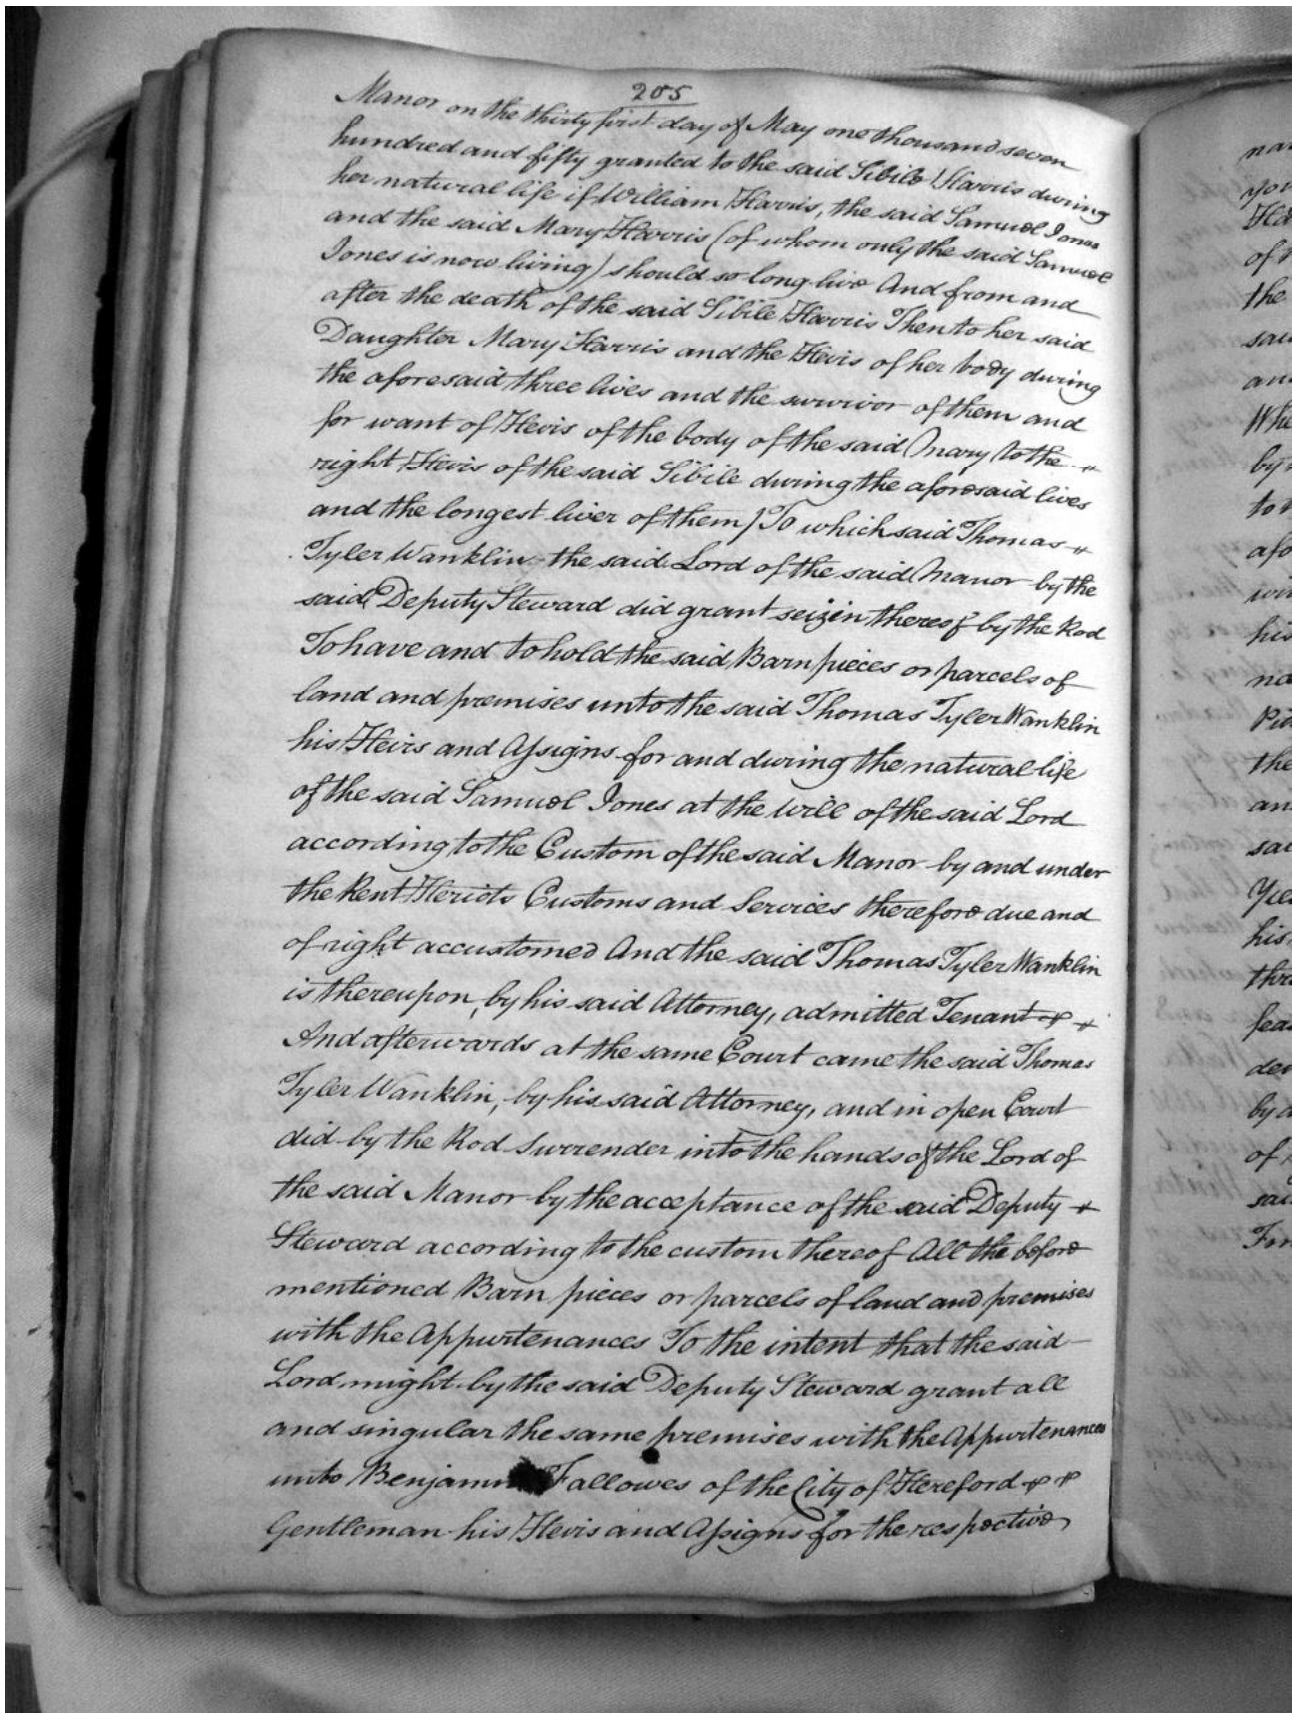 205
Manor on the thirty first day of May one thousand seven
hundred and fifty granted to the said Sibile Harris during
her natural life if William Harris, the said Samuel Jones
and the said Mary Harris (of whom only the said Samuel
Jones is now living) should so long live And from and
after the death of the said Sibile Harris Then to her said
Daughter Mary Harris and the Heirs of her body during
the aforesaid three lives and the survivor of them and
for want of Heirs of the body of the said Mary to the
right Heirs of the said Sibile during the aforesaid lives
and the longest liver of them) To which said Thomas
Tyler Wanklin the said Lord of the said Manor by the
said Deputy Steward did grant seizin thereof by the Rod
To have and to hold the said Barn pieces or parcels of
land and premises unto the said Thomas Tyler Wanklin
his Heirs and Assigns for and during the natural life
of the said Samuel Jones at the Will of the said Lord
according to the Custom of the said Manor by and under
the Rent Heriots Customs and Services therefore due and
of right accustomed And the said Thomas Tyler Wanklin
is thereupon, by his said Attorney, admitted Tenant
And afterwards at the same Court came the said Thomas
Tyler Wanklin, by his said Attorney, and in open Court
did by the Rod surrender into the hands of the Lord of
the said Manor by the acceptance of the said Deputy
Steward according to the custom thereof All the before
mentioned Barn pieces or parcels of land and premises
with the Appurtenances To the intent that the said
Lord might by the said Deputy Steward grant all
and singular the same premises with the Appurtenances
unto Benjamin Fallowes of the City of Hereford
Gentleman his Heirs and Assigns for the respective